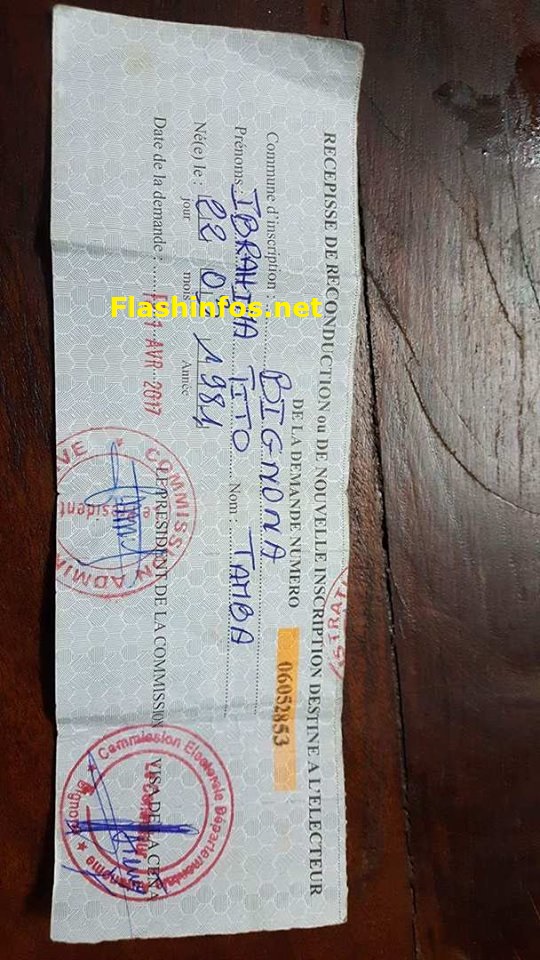 RECEPISSE DE RECONDUCTION ou DE NOUVELLE INSCRIPTION DESTINE A L'ELECTEUR
DE LA DEMANDE NUMERO 06052853
Commune d'inscription : BIGNONA
Prénoms : IBRAHIMA TITO Nom : TAMBA
Né(e) le : 22 1981
jour mois Année
Date de la demande : AVR 2017
LE PRESIDENT DE LA COMMISSION VISA DE LA CENA
COMMISSION ADMI
Commission Electorale Départementale
Bignona
ISTRATI
Flashinfos.net